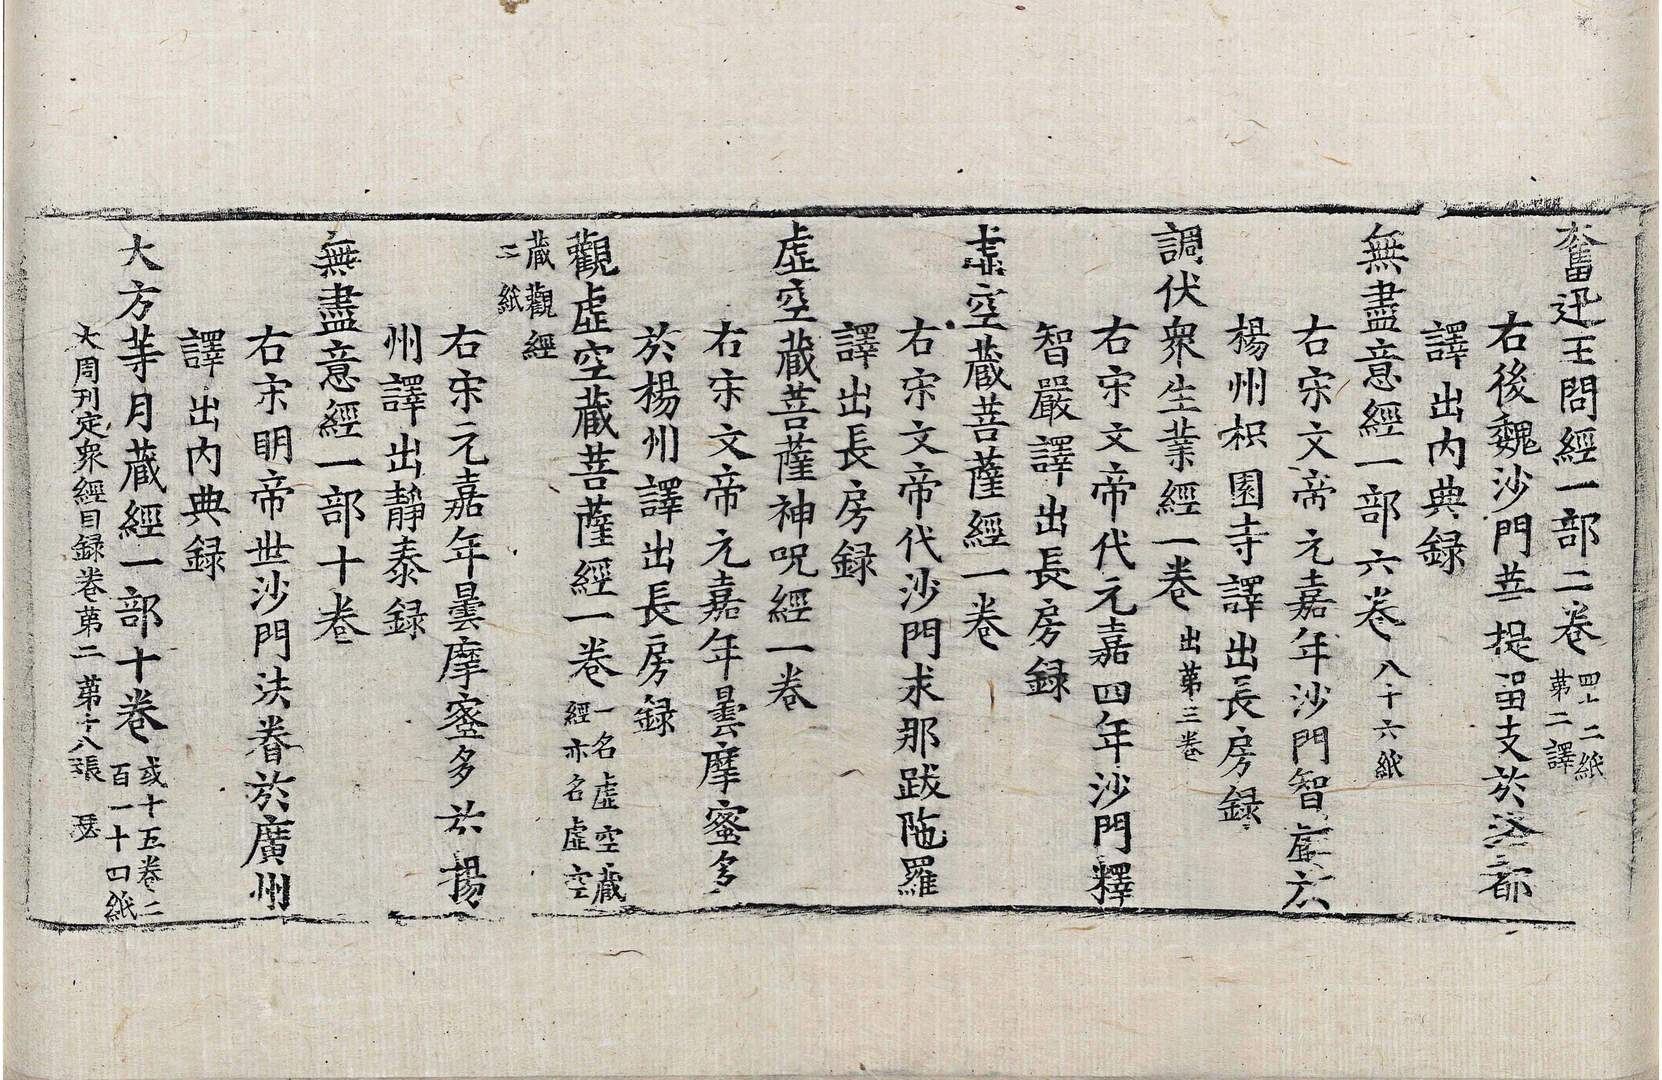 奮迅王問經一部二卷 四十二紙 第二譯
右後魏沙門菩提留支於洛都
譯出內典録
無盡意經一部六卷 八十六紙
右宋文帝元嘉年沙門智嚴於
楊州枳園寺譯出長房録
調伏衆生業經一卷 出第三卷
右宋文帝代元嘉四年沙門釋
智嚴譯出長房録
虛空藏菩薩經一卷
右宋文帝代沙門求那跋陁羅
譯出長房録
虛空藏菩薩神呪經一卷
右宋文帝元嘉年曇摩蜜多
於楊州譯出長房録
觀虛空藏菩薩經一卷 一名虛空藏經亦名虛空
藏觀經 二紙
右宋元嘉年曇摩蜜多於揚
州譯出靜泰録
無盡意經一部十卷
右宋明帝世沙門法眷於廣州
譯出內典録
大方等月藏經一部十卷 或十五卷二百一十四紙
大周刊定衆經目録卷第二 第十八張 瑟